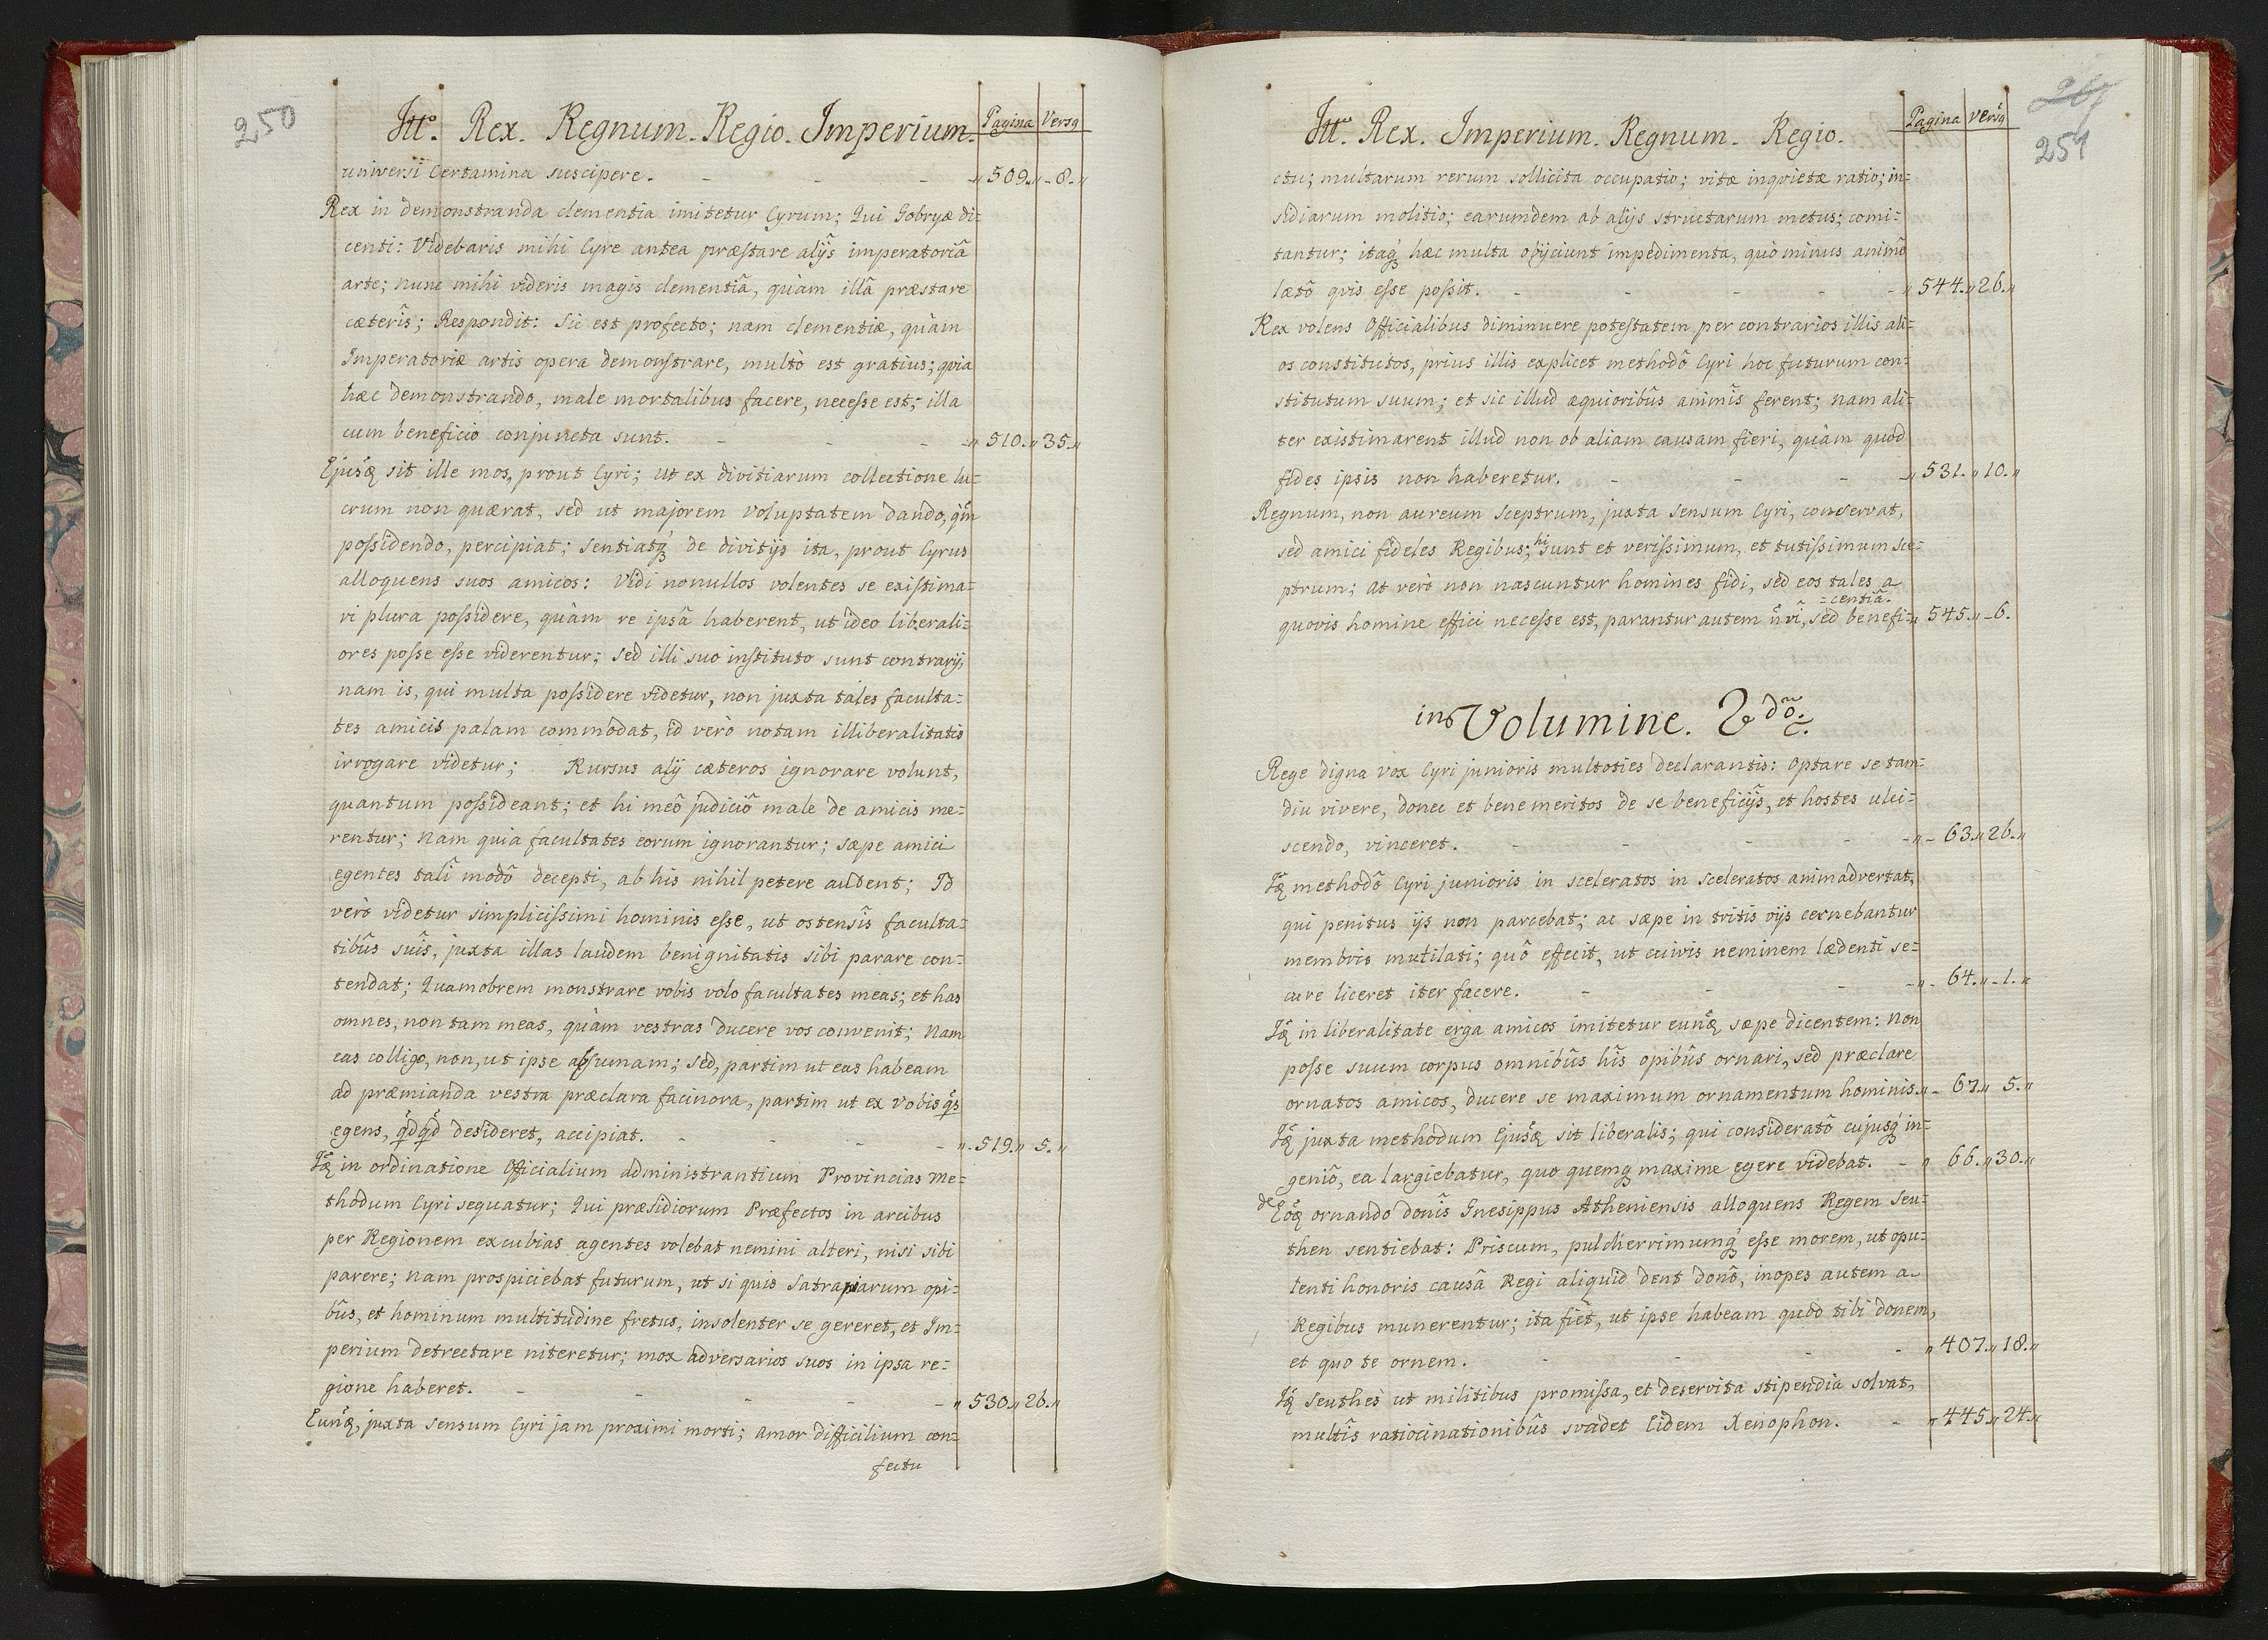 250
Itto. Rex. Regnum. Regio. Imperium. Pagina Versq
universi Certamina suscipere. - - - „509.„-8.„
Rex in demonstranda clementia imitetur Cyrum; Qui Gobryæ di=
centi: Videbaris mihi Cyre antea præstare alijs imperatoriâ
arte; nunc mihi videris magis clementiâ, quàm illâ præstare
cæteris; Respondit: Sic est profecto; nam clementiæ, quàm
Imperatoriæ artis opera demonstrare, multò est gratius; qvia
hæc demonstrando, male mortalibus facere, necesse est; illa
cum beneficio conjuncta sunt. - - - „510.„35.„
Ejusq sit ille mos, prout Cyri; ut ex divitiarum collectione lu=
crum non quærat, sed ut majorem voluptatem dando, qm
possidendo, percipiat; sentiatq de divitijs ita, prout Cyrus
alloquens suos amicos: Vidi nonullos volentes se existima=
ri plura possidere, quàm re ipsâ haberent, ut ideo liberali=
ores posse esse viderentur; sed illi suo instituto sunt contrarij,
nam is, qui multa possidere videtur, non juxta tales faculta=
tes amicis palam commodat, id verò notam illiberalitatis
irrogare videtur; Rursus alij cæteros ignorare volunt,
quantum possideant; et hi meô judiciô male de amicis me=
rentur; Nam quia facultates eorum ignorantur; sæpe amici
egentes tali modô decepti, ab his nihil petere audent; Id
verò videtur simplicissimi hominis esse, ut ostensîs faculta=
tibûs suîs, juxta illas laudem benignitatis sibi parare con=
tendat; Quamobrem monstrare vobis volo facultates meas; et has
omnes, non tam meas, quàm vestras ducere vos convenit; Nam
eas colligo, non, ut ipse absumam; sed, partim ut eas habeam
ad præmianda vestra præclara facinora, partim ut ex vobis qs
egens, qdqd desideret, accipiat. - - - „-519.„-5.„
Iq in ordinatione Officialium administrantium Provincias me=
thodum Cyri sequatur; Qui præsidiorum Præfectos in arcibus
per Regionem excubias agentes volebat nemini alteri, nisi sibi
parere; nam prospiciebat futurum, ut si quis satraparum opi=
bûs, et hominum multitudine fretus, insolenter se gereret, et Im=
perium detrectare niteretur; mox adversarios suos in ipsa re=
gione haberet. - - - - „530.„26.„
Eunq, juxta sensum Cyri jam proximi morti; amor difficilium con=
fectu
267
251
Itto. Rex. Imperium. Regnum. Regio. Pagina versq
ctu; multarum rerum sollicita occupatio; vitæ inqvietæ ratio; in=
sidiarum molitio; earumdem ab alijs structarum metus; comi=
tantur; itaq hæc multa objiciunt impedimenta, quò minus animô
lætô qvis esse possit. - - - - - „544.„26.„
Rex volens Officialibus diminuere potestatem, per contrarios illis ali=
os constitutos, prius illis explicet methodô Cyri hoc futurum con=
stitutum suum; et sic illud æquioribûs animîs ferent; nam ali=
ter existimarent illud non ob aliam causam fieri, quàm quod
fides ipsis non haberetur. - - - „531.„10.„
Regnum, non aureum Sceptrum, juxta sensum Cyri, conservat,
sed amici fideles Regibus; hi sunt et verissimum, et tutissimum sce=
ptrum; at verò non nascuntur homines fidi, sed eos tales a
quovis homine effici necesse est, parantur autem n vi, sed benefi= „545.„-6.
=centiâ.
in Volumine. 2do.
Rege digna vox Cyri junioris multoties declarantis: Optare se tam=
diu vivere, donec et bene meritos de se beneficijs, et hostes ulci=
scendo, vinceret. - - - - „-63.„26.„
Iq methodô Cyri junioris in sceleratos in sceleratos animadvertat,
qui penitus ijs non parcebat; ac sæpe in tritis vijs cernebantur
membris mutilati; quô effecit, ut cuivis neminem lædenti se=
cure liceret iter facere. - - - „-64.„-1.„
Iq in liberalitate erga amicos imitetur eunq, sæpe dicentem: Non
posse suum corpus omnibûs hîs opibûs ornari, sed præclare
ornatos amicos, ducere se maximum ornamentum hominis. „-67.„ 5.„
Iq juxta methodum Ejusq sit liberalis; qui consideratô cujusq in=
geniô, ea largiebatur, quo quemq maxime egere videbat. - „ 66.„30.„
de Eoq ornando donîs Gnesippus Atheniensis alloquens Regem Seu=
then sentiebat: Priscum, pulcherrimumq esse morem, ut opu=
lenti honoris causâ Regi aliquid dent donô, inopes autem a
Regibus munerentur; ita fiet, ut ipse habeam quod tibi donem,
et quo te ornem. - - - - „407.„18.„
Iq Seuthes ut militibus promissa, et deservita stipendia solvat,
multîs ratiocinationibûs svadet Eidem Xenophon. - „445.„24.„